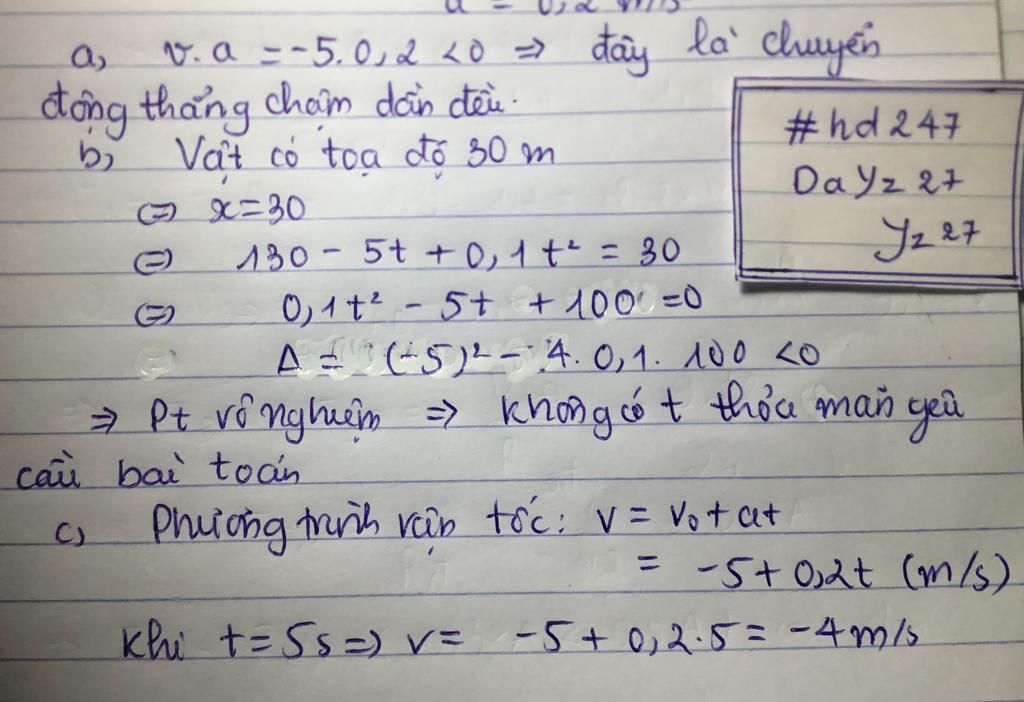 a = 0,2 m/s
a, v.a = -5.0,2 <0 => đây là chuyển
động thẳng chậm dần đều.
b, Vật có toạ độ 30 m
<=> x=30
<=> 130 - 5t + 0,1t² = 30
<=> 0,1t² - 5t + 100 =0
Δ = (-5)² - 4.0,1.100 <0
=> Pt vô nghiệm => không có t thỏa mãn yêu
cầu bài toán
c, Phương trình vận tốc: v = v₀+at
= -5+0,2t (m/s)
Khi t=5s=> v= -5 + 0,2.5= -4m/s
#hd247
DaYz27
Yz27